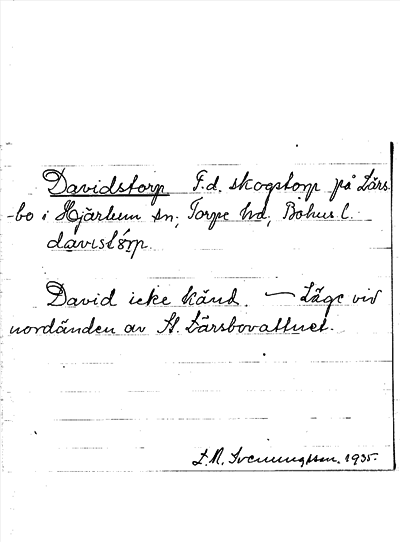 Davidstorp F.d. skogstorp på Lärs
-bo i Hjärtum sn, Torpe hd, Bohus l.
davistórp.
David icke känd. — Läge vid
nordänden av St. Lärsbovattnet.
L.N. Svenungsson. 1935.